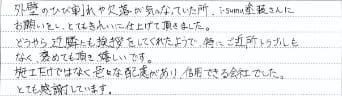 外壁のひび割れや欠落が気になっていた所、i-sumu塗装さんに
お願いをし、とてもきれいに仕上げて頂きました。
どうやら近隣にも挨拶をしてくれたようで、特にご近所トラブルも
なく、褒めても頂き嬉しいです。
施工だけではなく色々な配慮があり、信用できる会社でした。
とても感謝しています。